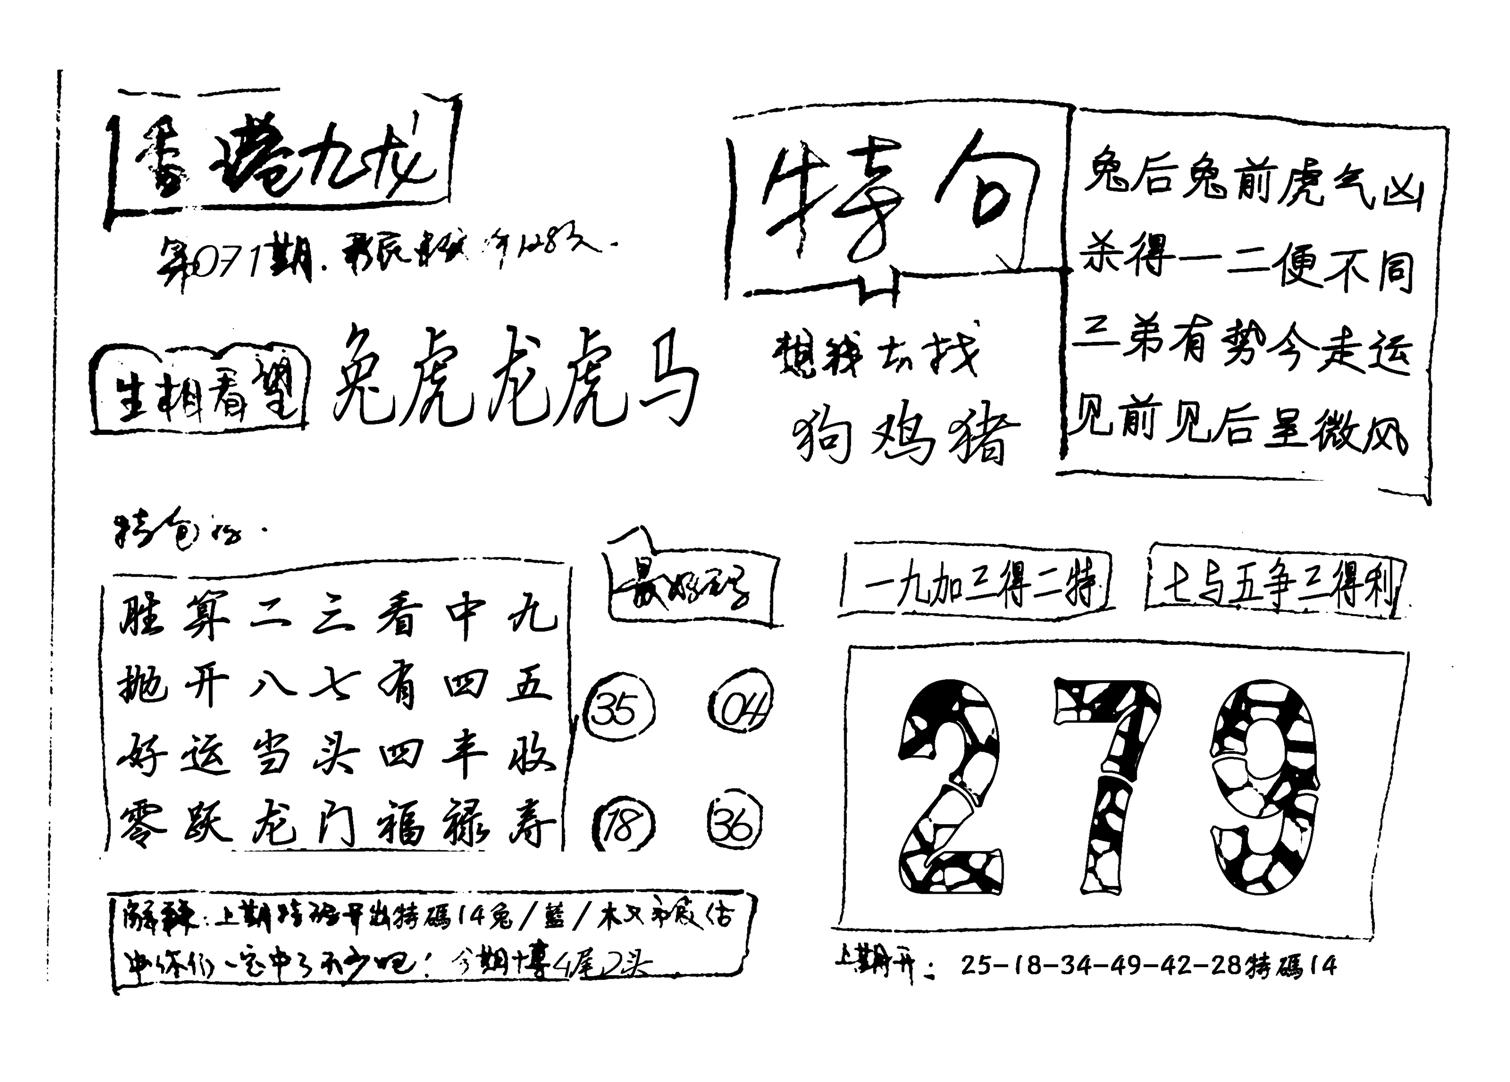 香港九龙
第071期.
生相看望
兔虎龙虎马
特句
兔后兔前虎气凶
杀得一二便不同
三弟有势今走运
见前见后呈微风
想我去找
狗鸡猪
特包
胜算二三看中九
抛开八七有四五
好运当头四丰收
零跃龙门福禄寿
最好码
35 04
18 36
一九加三得二特
七与五争三得利
279
解释:上期特码开出特碼14兔/藍/木
你们一定中了不少吧!今期博4尾2头
上期开: 25-18-34-49-42-28特碼14